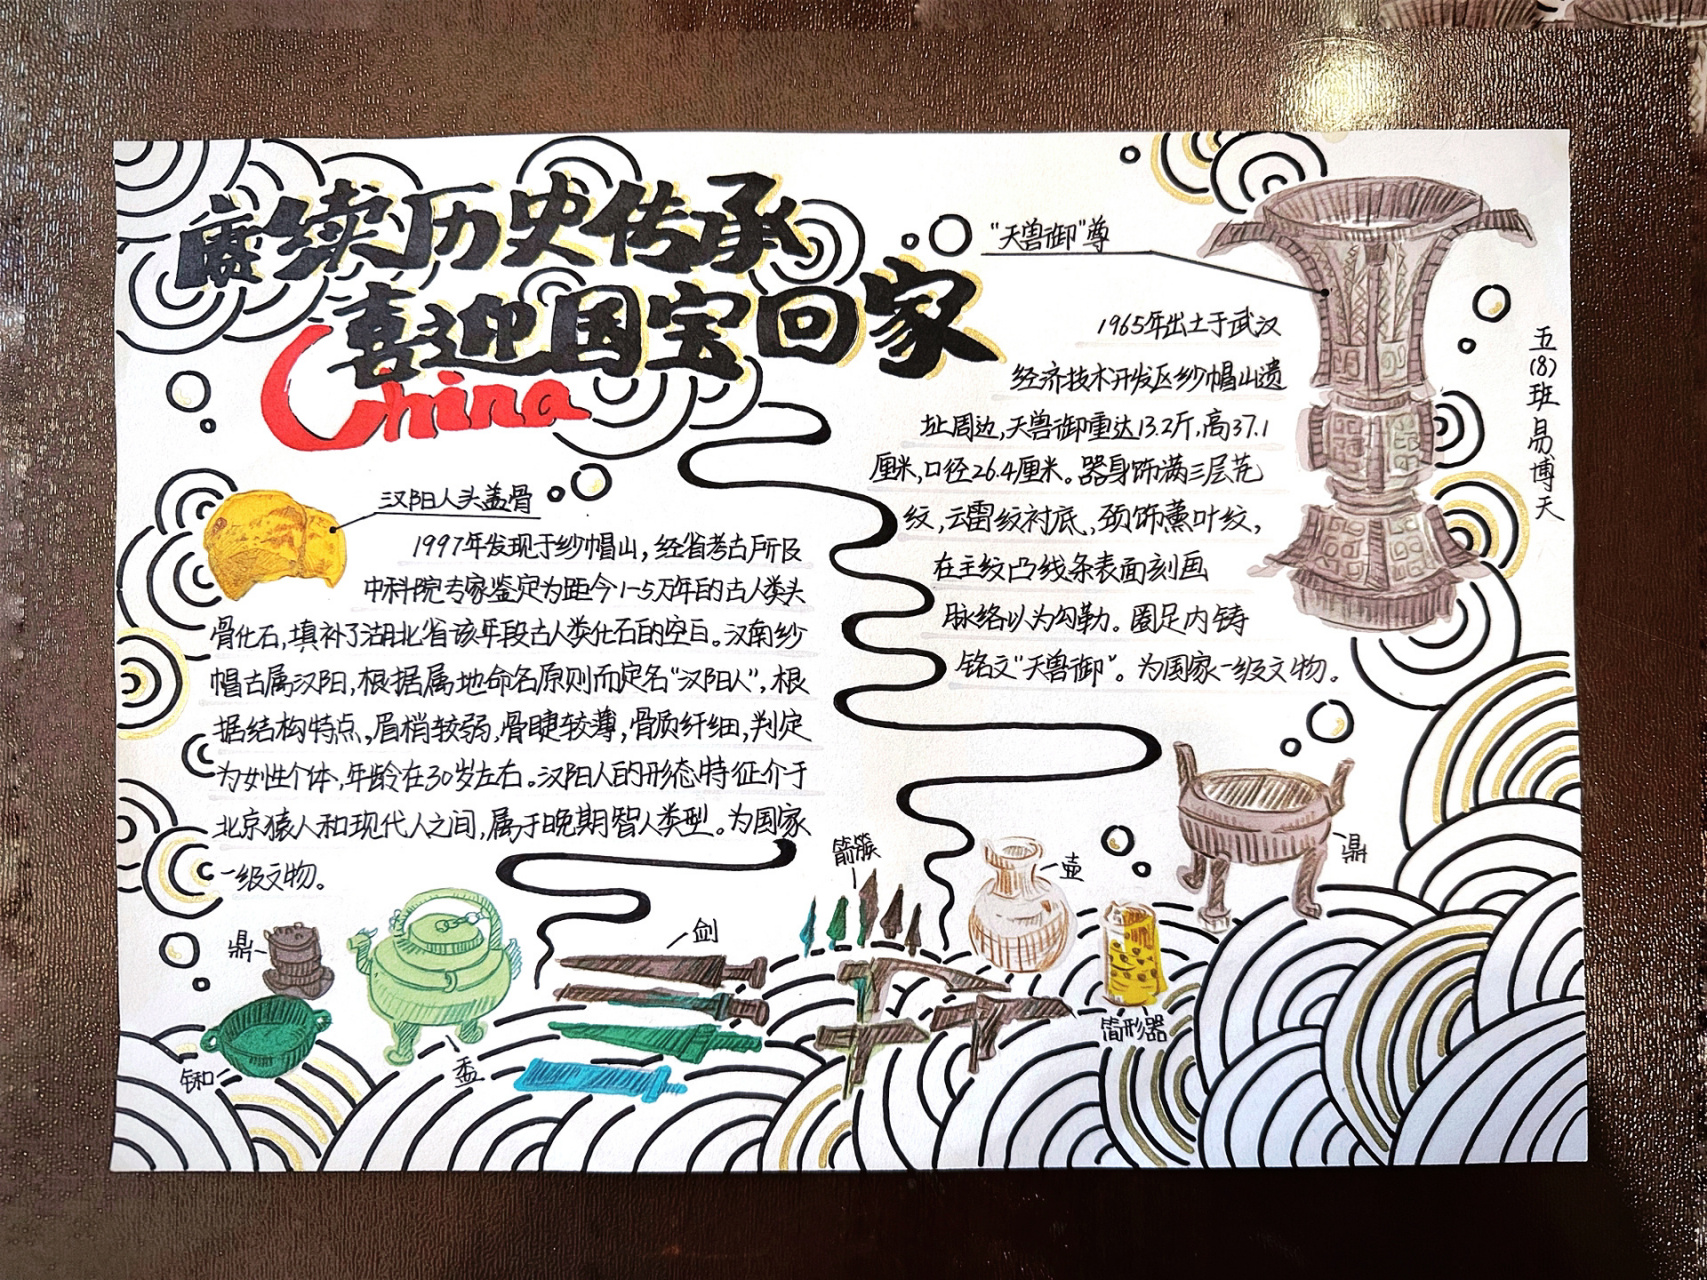 赓续历史传承
喜迎国宝回家
China
"天兽御"尊
1965年出土于武汉
经济技术开发区纱帽山遗
址周边,天兽御重达13.2斤,高37.1
厘米,口径26.4厘米。器身饰满三层花
纹,云雷纹衬底,颈饰蕉叶纹,
在主纹凸线条表面刻画
脉络以为勾勒。圈足内铸
铭文"天兽御"。为国家一级文物。
五(8)班易博天
汉阳人头盖骨
1997年发现于纱帽山,经省考古所及
中科院专家鉴定为距今1-5万年的古人类头
骨化石,填补了湖北省该年段古人类化石的空白。汉南纱
帽古属汉阳,根据属地命名原则而定名"汉阳人",根
据结构特点,眉梢较弱,骨睫较薄,骨质纤细,判定
为女性个体,年龄在30岁左右。汉阳人的形态特征介于
北京猿人和现代人之间,属于晚期智人类型。为国家
一级文物。
鼎
钿
盉
剑
箭簇
壶
鼎
筒形器